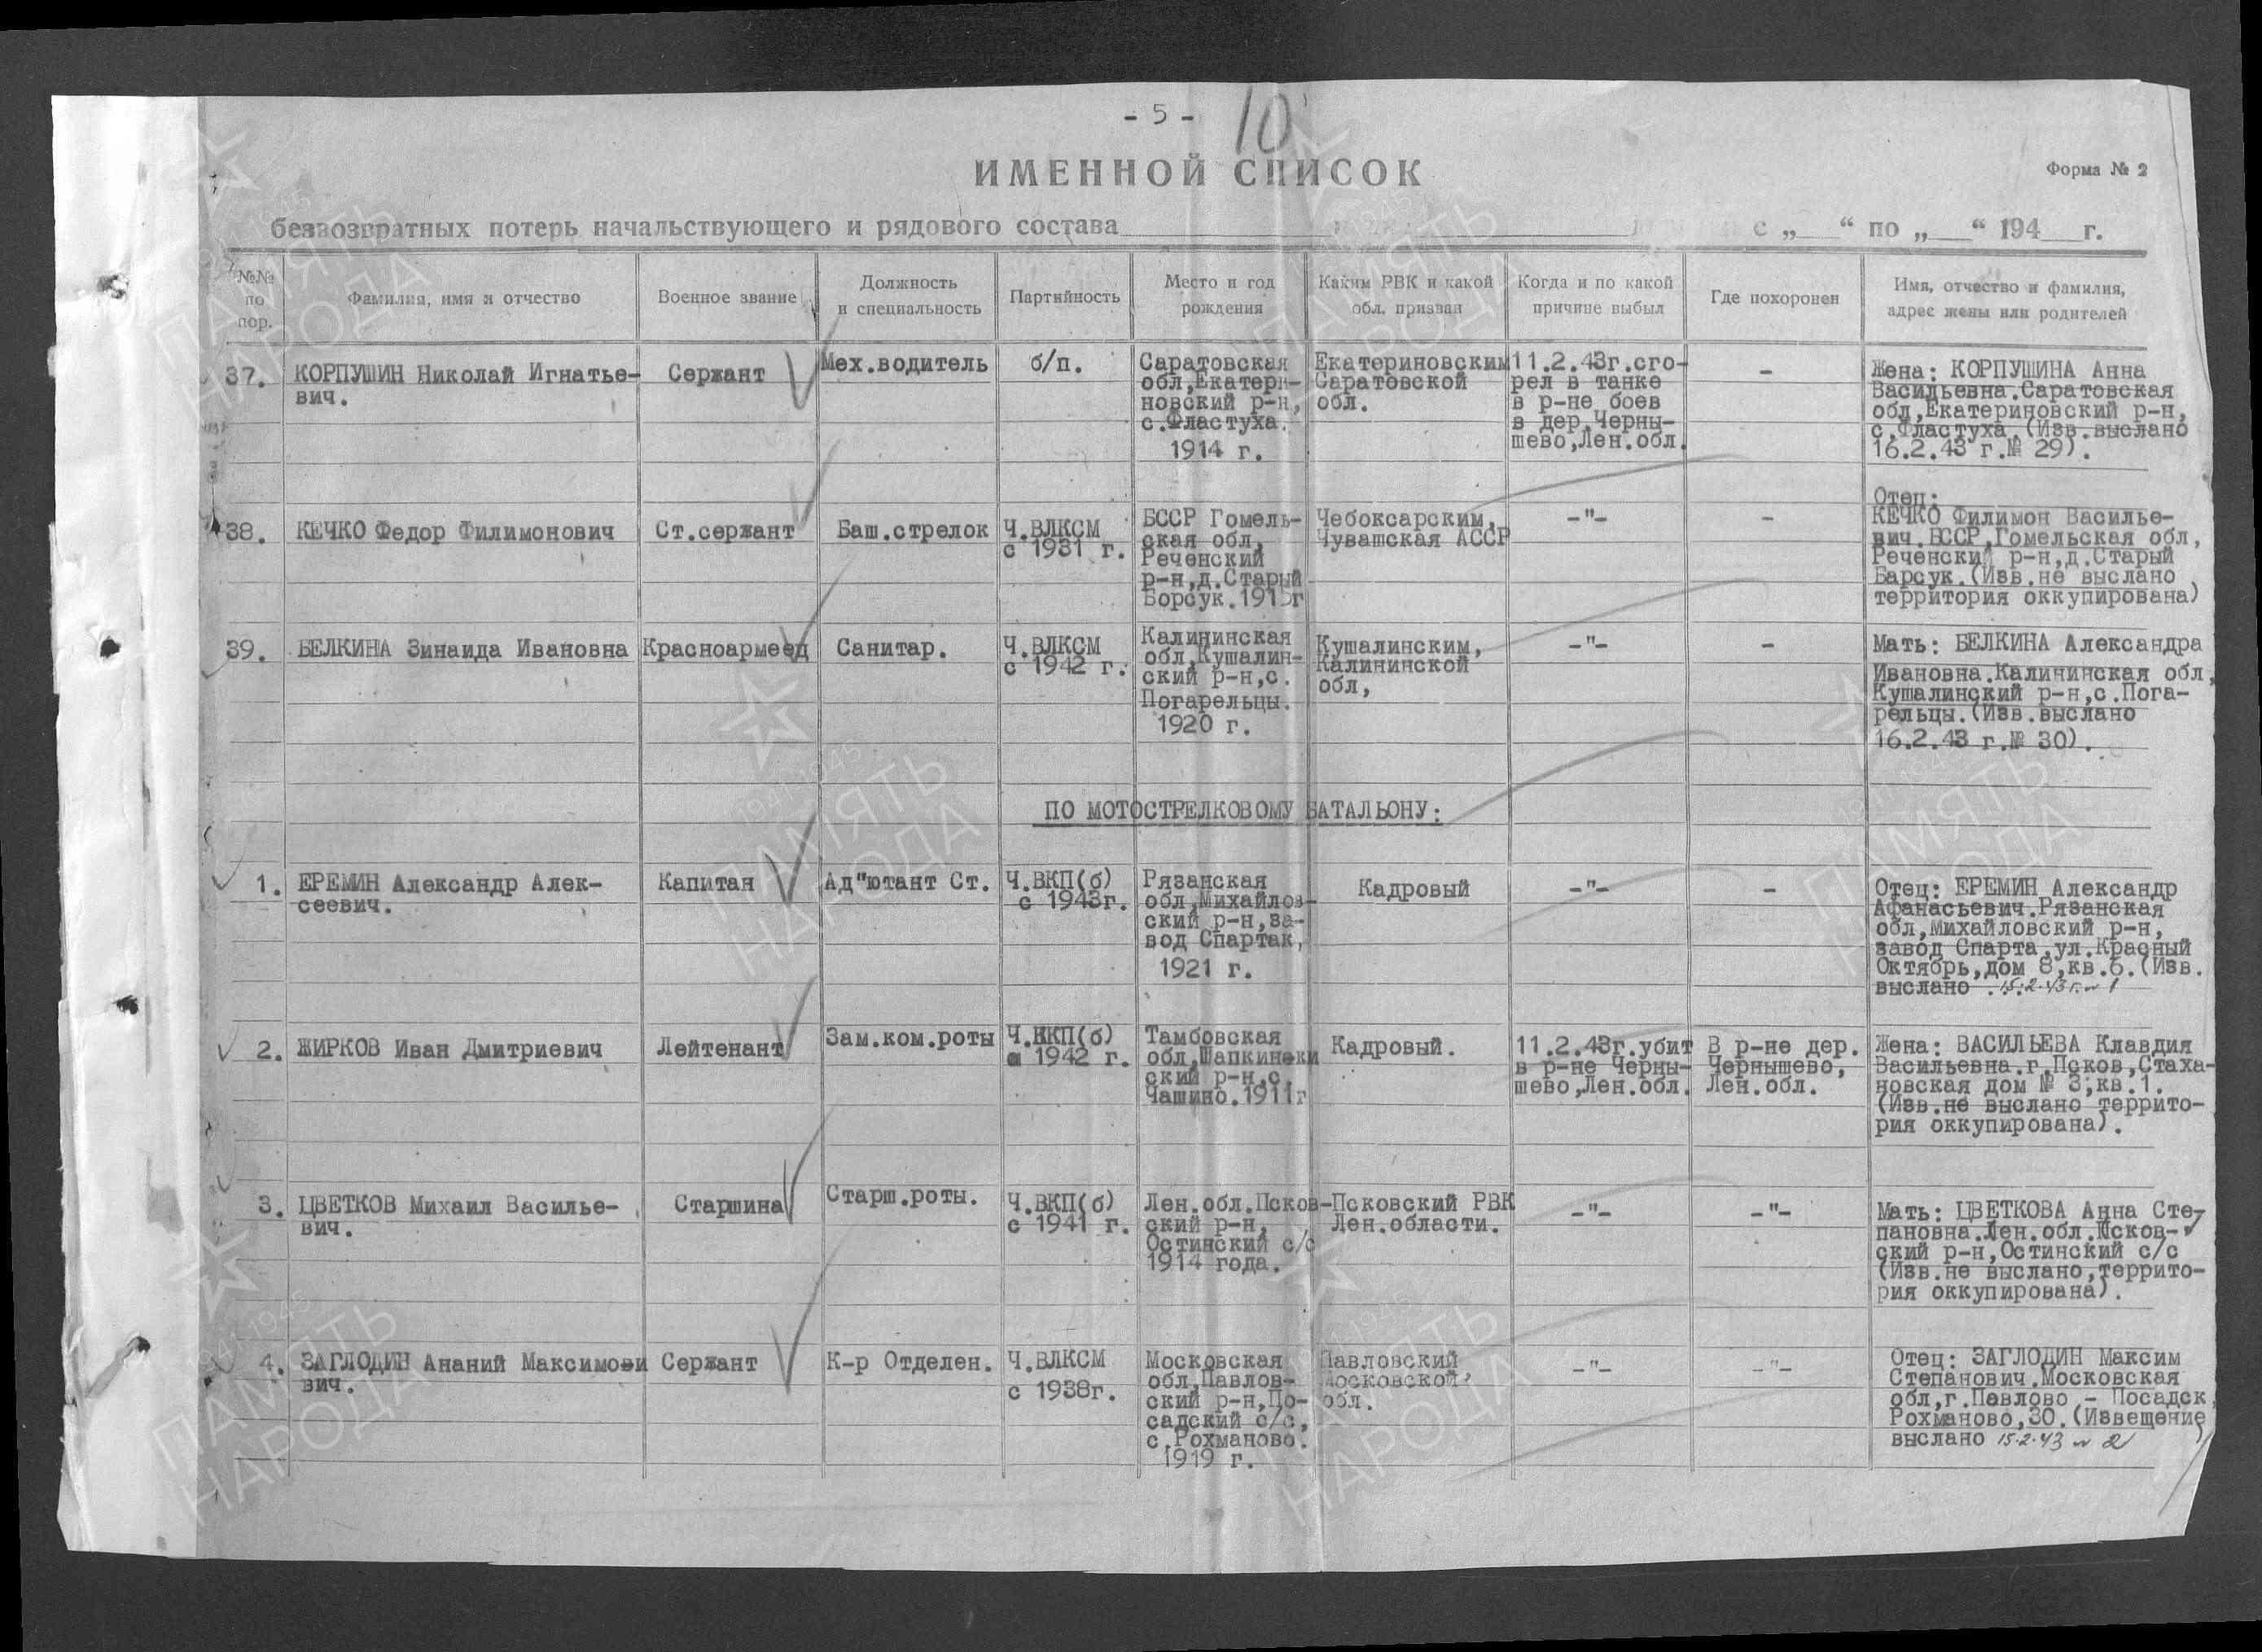 - 5 - 10
ИМЕННОЙ СПИСОК
Форма № 2
безвозвратных потерь начальствующего и рядового состава с „ “ по „ “ 194 г.
№№ по пор.
Фамилия, имя и отчество
Военное звание
Должность и специальность
Партийность
Место и год рождения
Каким РВК и какой обл. призван
Когда и по какой причине выбыл
Где похоронен
Имя, отчество и фамилия, адрес жены или родителей
37.
КОРПУШИН Николай Игнатье-
вич.
Сержант
Мех.водитель
б/п.
Саратовская
обл,Екатери-
новский р-н,
с.Фластуха.
1914 г.
Екатериновским
Саратовской
обл.
11.2.43г.сго-
рел в танке
в р-не боев
в дер.Черны-
шево,Лен.обл.
-
Жена: КОРПУШИНА Анна
Васильевна.Саратовская
обл,Екатериновский р-н,
с.Фластуха.(Изв.выслано
16.2.43 г.№ 29).
38.
КЕЧКО Федор Филимонович
Ст.сержант
Баш.стрелок
Ч.ВЛКСМ
с 1931 г.
БССР Гомель-
ская обл,
Реченский
р-н,д.Старый
Борсук.
Чебоксарским,
Чувашская АССР
-"-
-
Отец:
КЕЧКО Филимон Василье-
вич.БССР,Гомельская обл,
Реченский р-н,д.Старый
Барсук.(Изв.не выслано
территория оккупирована)
39.
БЕЛКИНА Зинаида Ивановна
Красноармеец
Санитар.
Ч.ВЛКСМ
с 1942 г.
Калининская
обл,Кушалин-
ский р-н,с.
Погарельцы.
1920 г.
Кушалинским,
Калининской
обл,
-"-
-
Мать: БЕЛКИНА Александра
Ивановна.Калининская обл,
Кушалинский р-н,с.Пога-
рельцы.(Изв.выслано
16.2.43 г.№ 30).
ПО МОТОСТРЕЛКОВОМУ БАТАЛЬОНУ:
1.
ЕРЕМИН Александр Алек-
сеевич.
Капитан
Ад"ютант Ст.
Ч.ВКП(б)
с 1943г.
Рязанская
обл,Михайлов-
ский р-н,за-
вод Спартак,
1921 г.
Кадровый
-"-
-
Отец: ЕРЕМИН Александр
Афанасьевич.Рязанская
обл,Михайловский р-н,
завод Спарта,ул.Красный
Октябрь,дом 8,кв.6.(Изв.
выслано 15.2.43 г. № 1
2.
ЖИРКОВ Иван Дмитриевич
Лейтенант
Зам.ком.роты
Ч.ВКП(б)
с 1942 г.
Тамбовская
обл,Шапкински
ский р-н,с.
Чашино.1911г
Кадровый.
11.2.43г.убит
в р-не Черны-
шево,Лен.обл.
В р-не дер.
Чернышево,
Лен.обл.
Жена: ВАСИЛЬЕВА Клавдия
Васильевна.г.Псков,Стаха-
новская дом № 3,кв.1.
(Изв.не выслано террито-
рия оккупирована).
3.
ЦВЕТКОВ Михаил Василье-
вич.
Старшина
Старш.роты.
Ч.ВКП(б)
с 1941 г.
Лен.обл.Псков-
ский р-н,
Остинский с/с
1914 года.
Псковский РВК
Лен.области.
-"-
-"-
Мать: ЦВЕТКОВА Анна Сте-
пановна.Лен.обл.Псков-
ский р-н,Остинский с/с
(Изв.не выслано,террито-
рия оккупирована).
4.
ЗАГЛОДИН Ананий Максимови
вич.
Сержант
К-р Отделен.
Ч.ВЛКСМ
с 1938г.
Московская
обл,Павлов-
ский р-н,По-
садский с/с,
с.Рохманово.
1919 г.
Павловский
Московской
обл.
-"-
-"-
Отец: ЗАГЛОДИН Максим
Степанович.Московская
обл,г.Павлово - Посадск,
Рохманово,30.(Извещение
выслано 15.2.43 № 2)
1941 1945
ПАМЯТЬ
НАРОДА